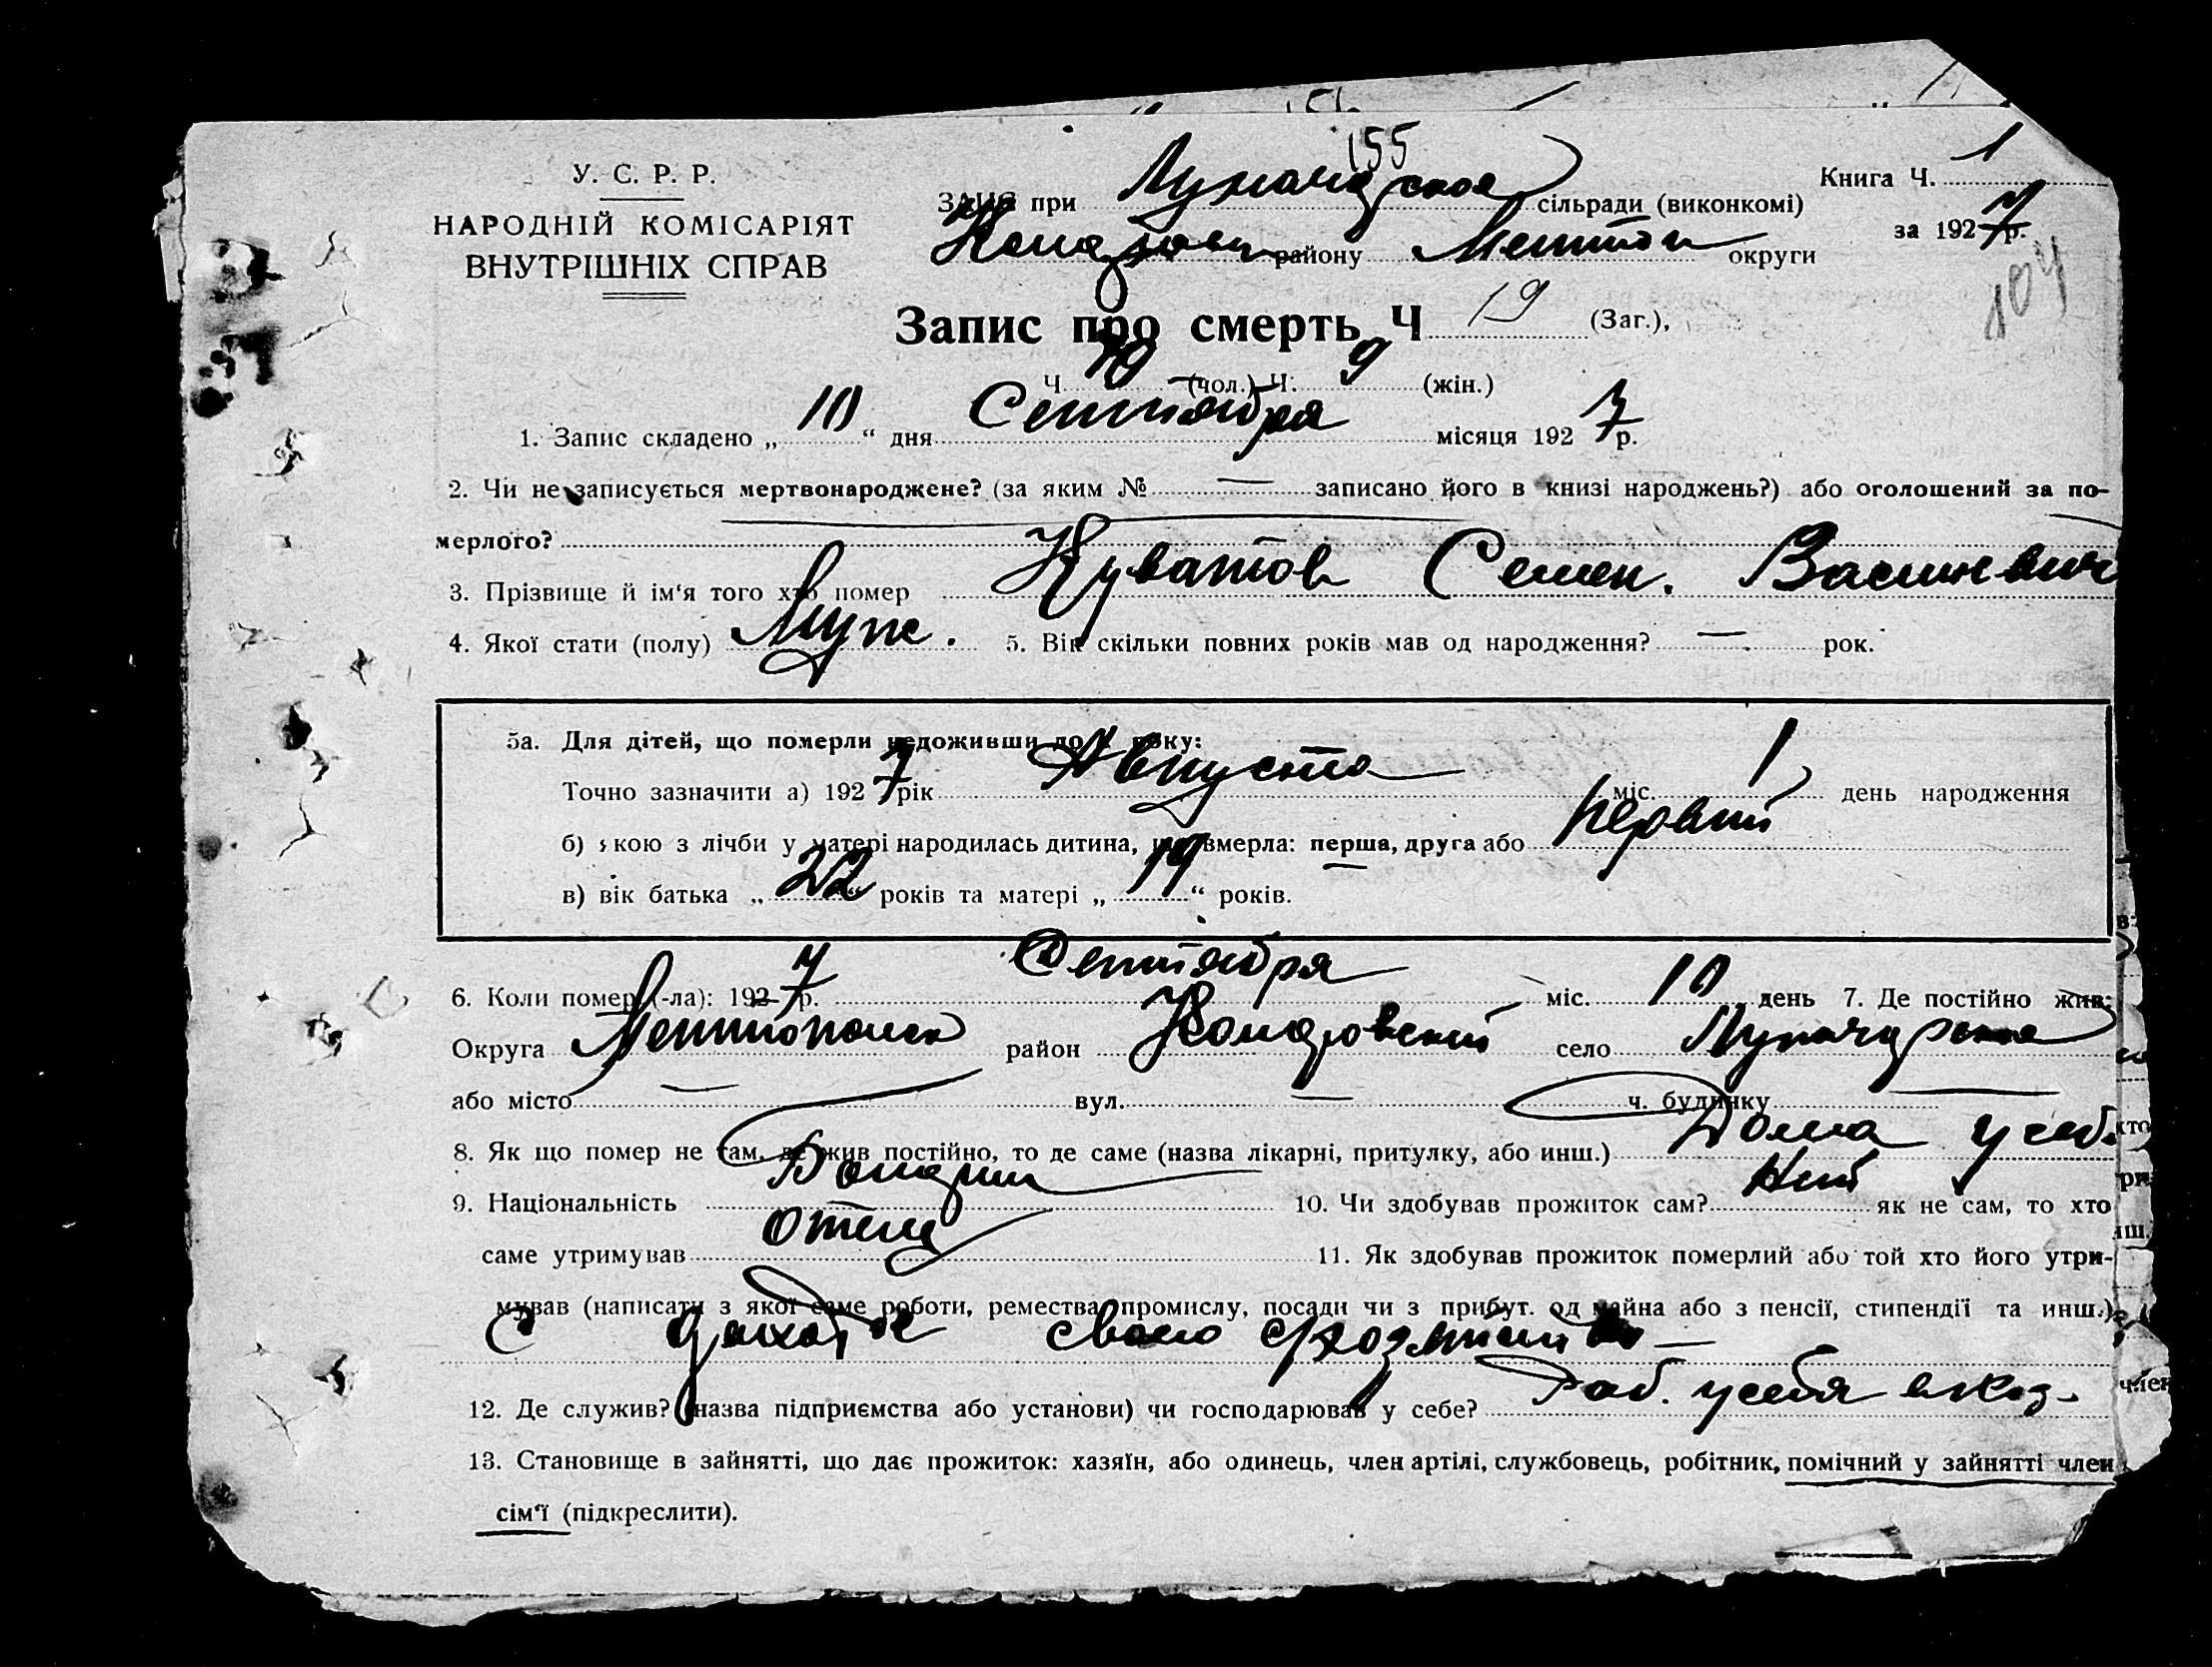 155
У. С. Р. Р.
НАРОДНІЙ КОМІСАРІЯТ
ВНУТРІШНІХ СПРАВ
ЗАГС при сільради (виконкомі)
району Мелитоп округи
Книга Ч. 1
за 1927 р.
104
Запис про смерть Ч 19 (Заг.),
Ч. 10 (чол.) Ч. 9 (жін.)
1. Запис складено „ 10 “ дня Сентября місяця 1927 р.
2. Чи не записується мертвонароджене? (за яким № — записано його в книзі народжень?) або оголошений за по-
мерлого?
3. Прізвище й ім'я того хто помер Куватов Семен.
4. Якої стати (полу) Муж. 5. Вік скільки повних років мав од народження? — рок.
5а. Для дітей, що померли недоживши до 1 року:
Точно зазначити а) 1927 рік Августа міс. 1 день народження
б) якою з лічби у матері народилась дитина, що вмерла: перша, друга або первый
в) вік батька „ 22 “ років та матері „ 19 “ років.
6. Коли помер (-ла): 1927 р. Сентября міс. 10 день 7. Де постійно жив:
Округа район село
або місто — вул. — ч. будинку —
8. Як що помер не там, де жив постійно, то де саме (назва лікарні, притулку, або инш.) Дома у себ
9. Національність 10. Чи здобував прожиток сам? Нет як не сам, то хто
саме утримував отец 11. Як здобував прожиток померлий або той хто його утри-
мував (написати з якої саме роботи, ремества, промислу, посади чи з прибут. од майна або з пенсії, стипендії та инш.)
С своего
12. Де служив? (назва підприємства або установи) чи господарював у себе? Раб. у себя в хоз-
13. Становище в зайнятті, що дає прожиток: хазяїн, або одинець, член артілі, службовець, робітник, помічний у зайнятті член
сім'ї (підкреслити).